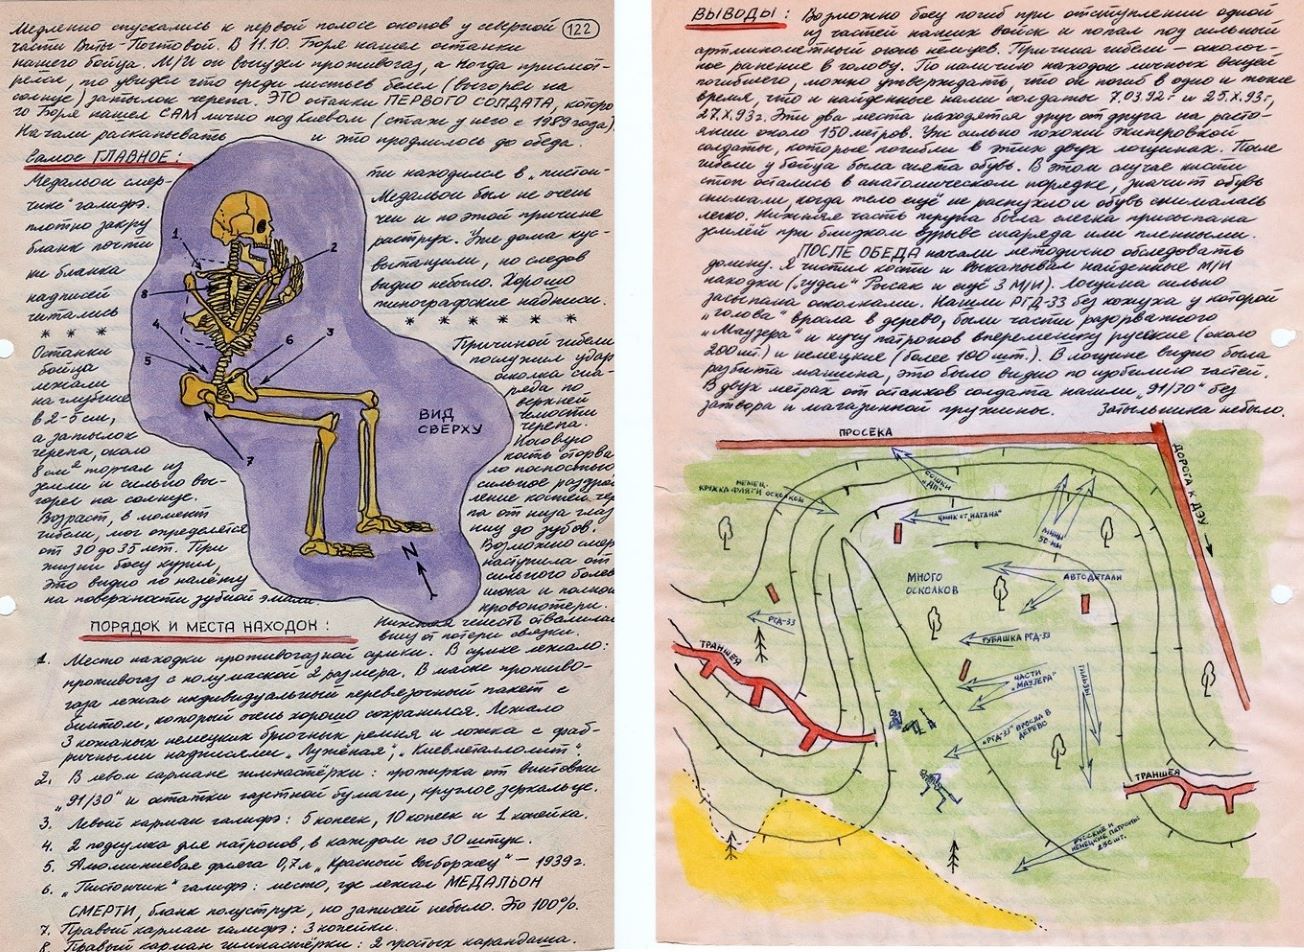 Медленно спускались к первой полосе окопов у северной
122
части Виты-Почтовой. В 11.10. Боря нашел останки
нашего бойца. М/И он вышудел противогаз, а когда присмот-
релся, то увидел что среди листьев белел (выгорел на
солнце) затылок черепа. ЭТО останки ПЕРВОГО СОЛДАТА, которо
го Боря нашел САМ лично под Киевом (стаж у него с 1989 года).
Начали раскапывать и это продлилось до обеда.
Самое ГЛАВНОЕ:
Медальон смер- ти находился в „пистон-
чике" галифэ. Медальон был не очень
плотно закру чен и по этой причине
бланк почти раструх. Уже дома кус-
ки бланка вытащили, но следов
надписей видно небыло. Хорошо
читались типографские надписи.
* * * * * * * * *
Останки
бойца
лежали
на глубине
в 2-5 см,
а затылок
черепа, около
8 см² торчал из
земли и сильно выго-
горел на солнце.
Возраст, в момент
гибели, мог определяется
от 30 до 35 лет. При
жизни боец курил,
это видно по налёту
на поверхности зубной эмали.
Причиной гибели
послужил удар
осколка сна-
ряда по
верхней
челюсти
черепа.
Носовую
кость оторва
ло полностью
сильное раздроб
ление костей чере
па от низа глаз
ниц до зубов.
Возможно смерть
наступила от
сильного болев
шока и полной
кровопотери.
Нижняя челюсть отвалилась
вниз от потери связки.
1.
2
8
4
5
6
3
7
ВИД
СВЕРХУ
N
ПОРЯДОК И МЕСТА НАХОДОК:
1. Место находки противогазной сумки. В сумке лежало:
противогаз с полумаской 2 размера. В маске противо-
газа лежал индивидуальный перевязочный пакет с
бинтом, который очень хорошо сохранился. Лежало
3 кожаных немецких брючных ремня и ложка с фаб-
ричными надписями „Лужёная", „Киевметаллолит".
2. В левом кармане гимнастёрки: протирка от винтовки
„91/30" и остатки газетной бумаги, круглое зеркальце.
3. Левый карман галифэ: 5 копеек, 10 копеек и 1 копейка.
4. 2 подсумка для патронов, в каждом по 30 штук.
5. Алюминиевая фляга 0,7л „Красный выборжец" – 1939г.
6. „Пистончик" галифэ: место, где лежал МЕДАЛЬОН
СМЕРТИ, бланк полуструх, но записей небыло. Это 100%.
7. Правый карман галифэ: 3 копейки.
8. Правый карман гимнастёрки: 2 простых карандаша.
ВЫВОДЫ: Возможно боец погиб при отступлении одной
из частей наших войск и попал под сильный
артминометный огонь немцев. Причина гибели – осколоч-
ное ранение в голову. По наличию находок личных вещей
погибшего, можно утверждать, что он погиб в одно и тоже
время, что и найденные нами солдаты 7.03.92г и 25.X.93г,
27.X.93г. Эти два места находятся друг от друга на расто-
янии около 150 метров. Уж сильно похожи экипировкой
солдаты, которые погибли в этих двух лощинах. После
гибели у бойца была снята обувь. В этом случае кисти
стоп остались в анатомическом порядке, значит обувь
снимали, когда тело ещё не распухло и обувь снималась
легко. Нижняя часть трупа была слегка присыпана
землёй при близком взрыве снаряда или пленными.
ПОСЛЕ ОБЕДА начали методично обследовать
долину. Я чистил кости и выкапывал найденные М/И
находки („гудел" Росак и ещё 3 М/И). Лощина сильно
засыпана осколками. Нашли РГД-33 без кожуха у которой
„голова" вросла в дерево, были части разорванного
„Маузера" и кучу патронов вперемешку русские (около
200 шт.) и немецкие (более 100 шт.). В лощине видно была
разбита машина, это было видно по изобилию частей.
В двух метрах от останков солдата нашли „91/30" без
затвора и магазинной пружины. Затыльника небыло.
ПРОСЕКА
ДОРОГА К ДЭУ
НЕМЕЦ.
КРУЖКА ФЛЯГИ ОСКОЛКОМ
СОШКИ
„ДП"
ЦИНК „Г. НАГАНА"
МИНЫ
50 мм
МНОГО
ОСКОЛКОВ
АВТОДЕТАЛИ
РГД-33
РУБАШКА РГД-33
ТРАНШЕЯ
ЧАСТИ
„МАУЗЕРА"
ГИЛЬЗЫ
„РГД-33" ВРОСЛА В
ДЕРЕВО
ТРАНШЕЯ
РУССКИЕ И
НЕМЕЦКИЕ ПАТРОНЫ
290 шт.